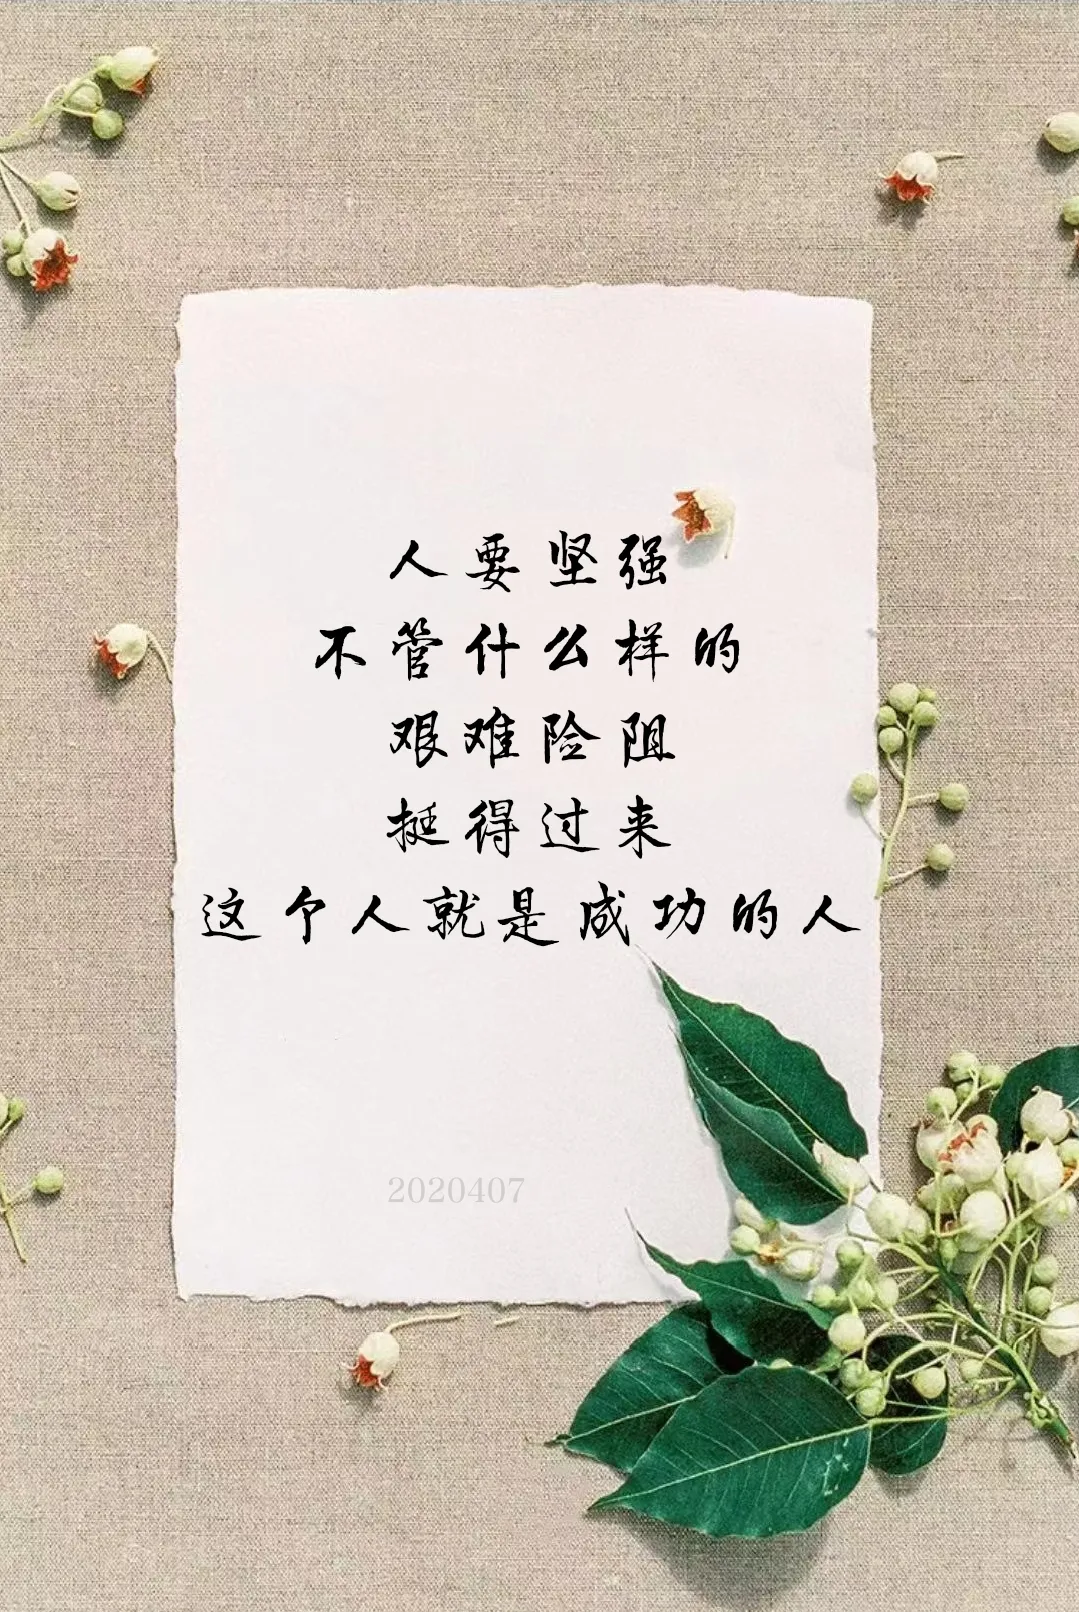 人要坚强
不管什么样的
艰难险阻
挺得过来
这个人就是成功的人
2020407